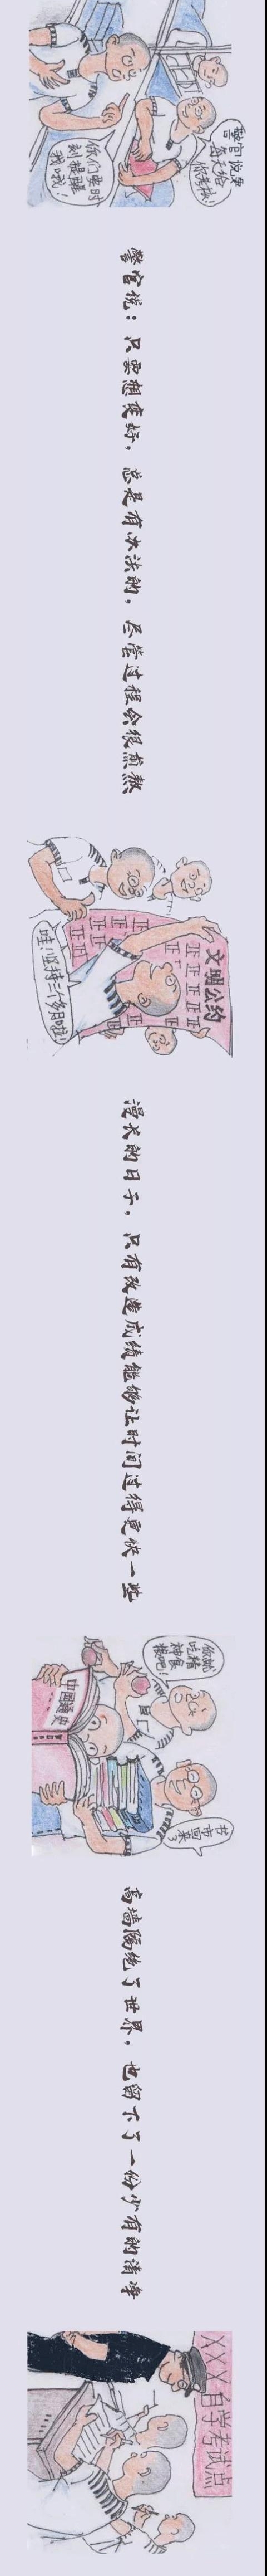 警官说要
每天给
你某某
你们要时
刻提醒
我哦！
警官说：只要想变好，总是有办法的，尽管过程会很煎熬
文明公约
正正正正正
正正正
正正
哇！坚持三个多月啦！
漫长的日子，只有改造成绩能够让时间过得更快一些
你就
吃精
神食
粮吧！
中國通史
书市回来了
高墙隔绝了世界，也留下了一份少有的清净
XXX自学考试点